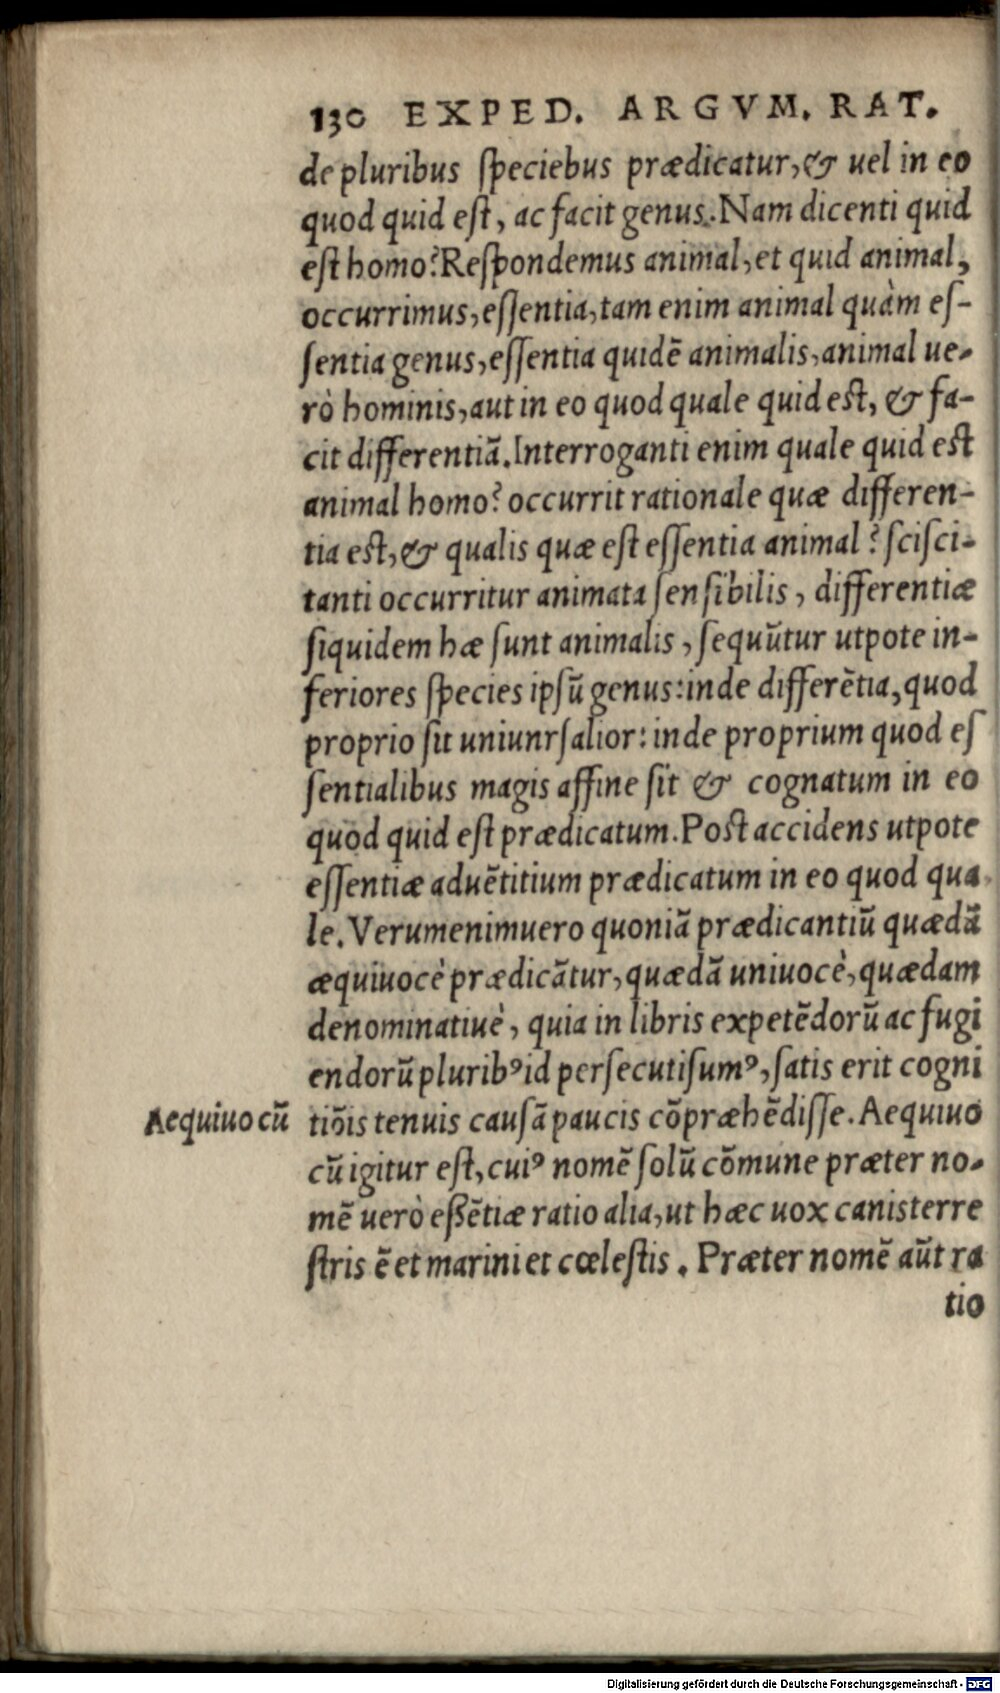 130 EXPED. ARGVM. RAT.
de pluribus ſpeciebus prædicatur, & uel in eo
quod quid eſt, ac facit genus. Nam dicenti quid
eſt homo? Reſpondemus animal, et quid animal,
occurrimus, eſſentia, tam enim animal quàm eſ-
ſentia genus, eſſentia quidē animalis, animal ue-
rò hominis, aut in eo quod quale quid eſt, & fa-
cit differentiā. Interroganti enim quale quid eſt
animal homo? occurrit rationale quæ differen-
tia eſt, & qualis quæ eſt eſſentia animal? ſciſci-
tanti occurritur animata ſenſibilis, differentiæ
ſiquidem hæ ſunt animalis, ſequūtur utpote in-
feriores ſpecies ipſū genus: inde differētia, quod
proprio ſit uniunrſalior: inde proprium quod eſ
ſentialibus magis affine ſit & cognatum in eo
quod quid eſt prædicatum. Poſt accidens utpote
eſſentiæ aduētitium prædicatum in eo quod qua
le. Verumenimuero quoniā prædicantiū quædā
æquiuocè prædicātur, quædā uniuocè, quædam
denominatiuè, quia in libris expetēdorū ac fugi
endorū pluribꝰ id perſecuti ſumꝰ, ſatis erit cogni
Aequiuocū
tiōis tenuis cauſā paucis cōpræhēdiſſe. Aequiuo
cū igitur eſt, cuiꝰ nomē ſolū cōmune præter no-
mē uerò eßētiæ ratio alia, ut hæc uox canis terre
ſtris ē et marini et cœleſtis. Præter nomē aūt ra
tio
Digitalisierung gefördert durch die Deutsche Forschungsgemeinschaft - DFG